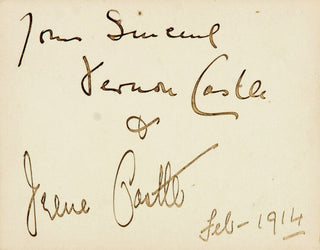 Yours Sincerely
Vernon Castle
&
Irene Castle
Feb- 1914